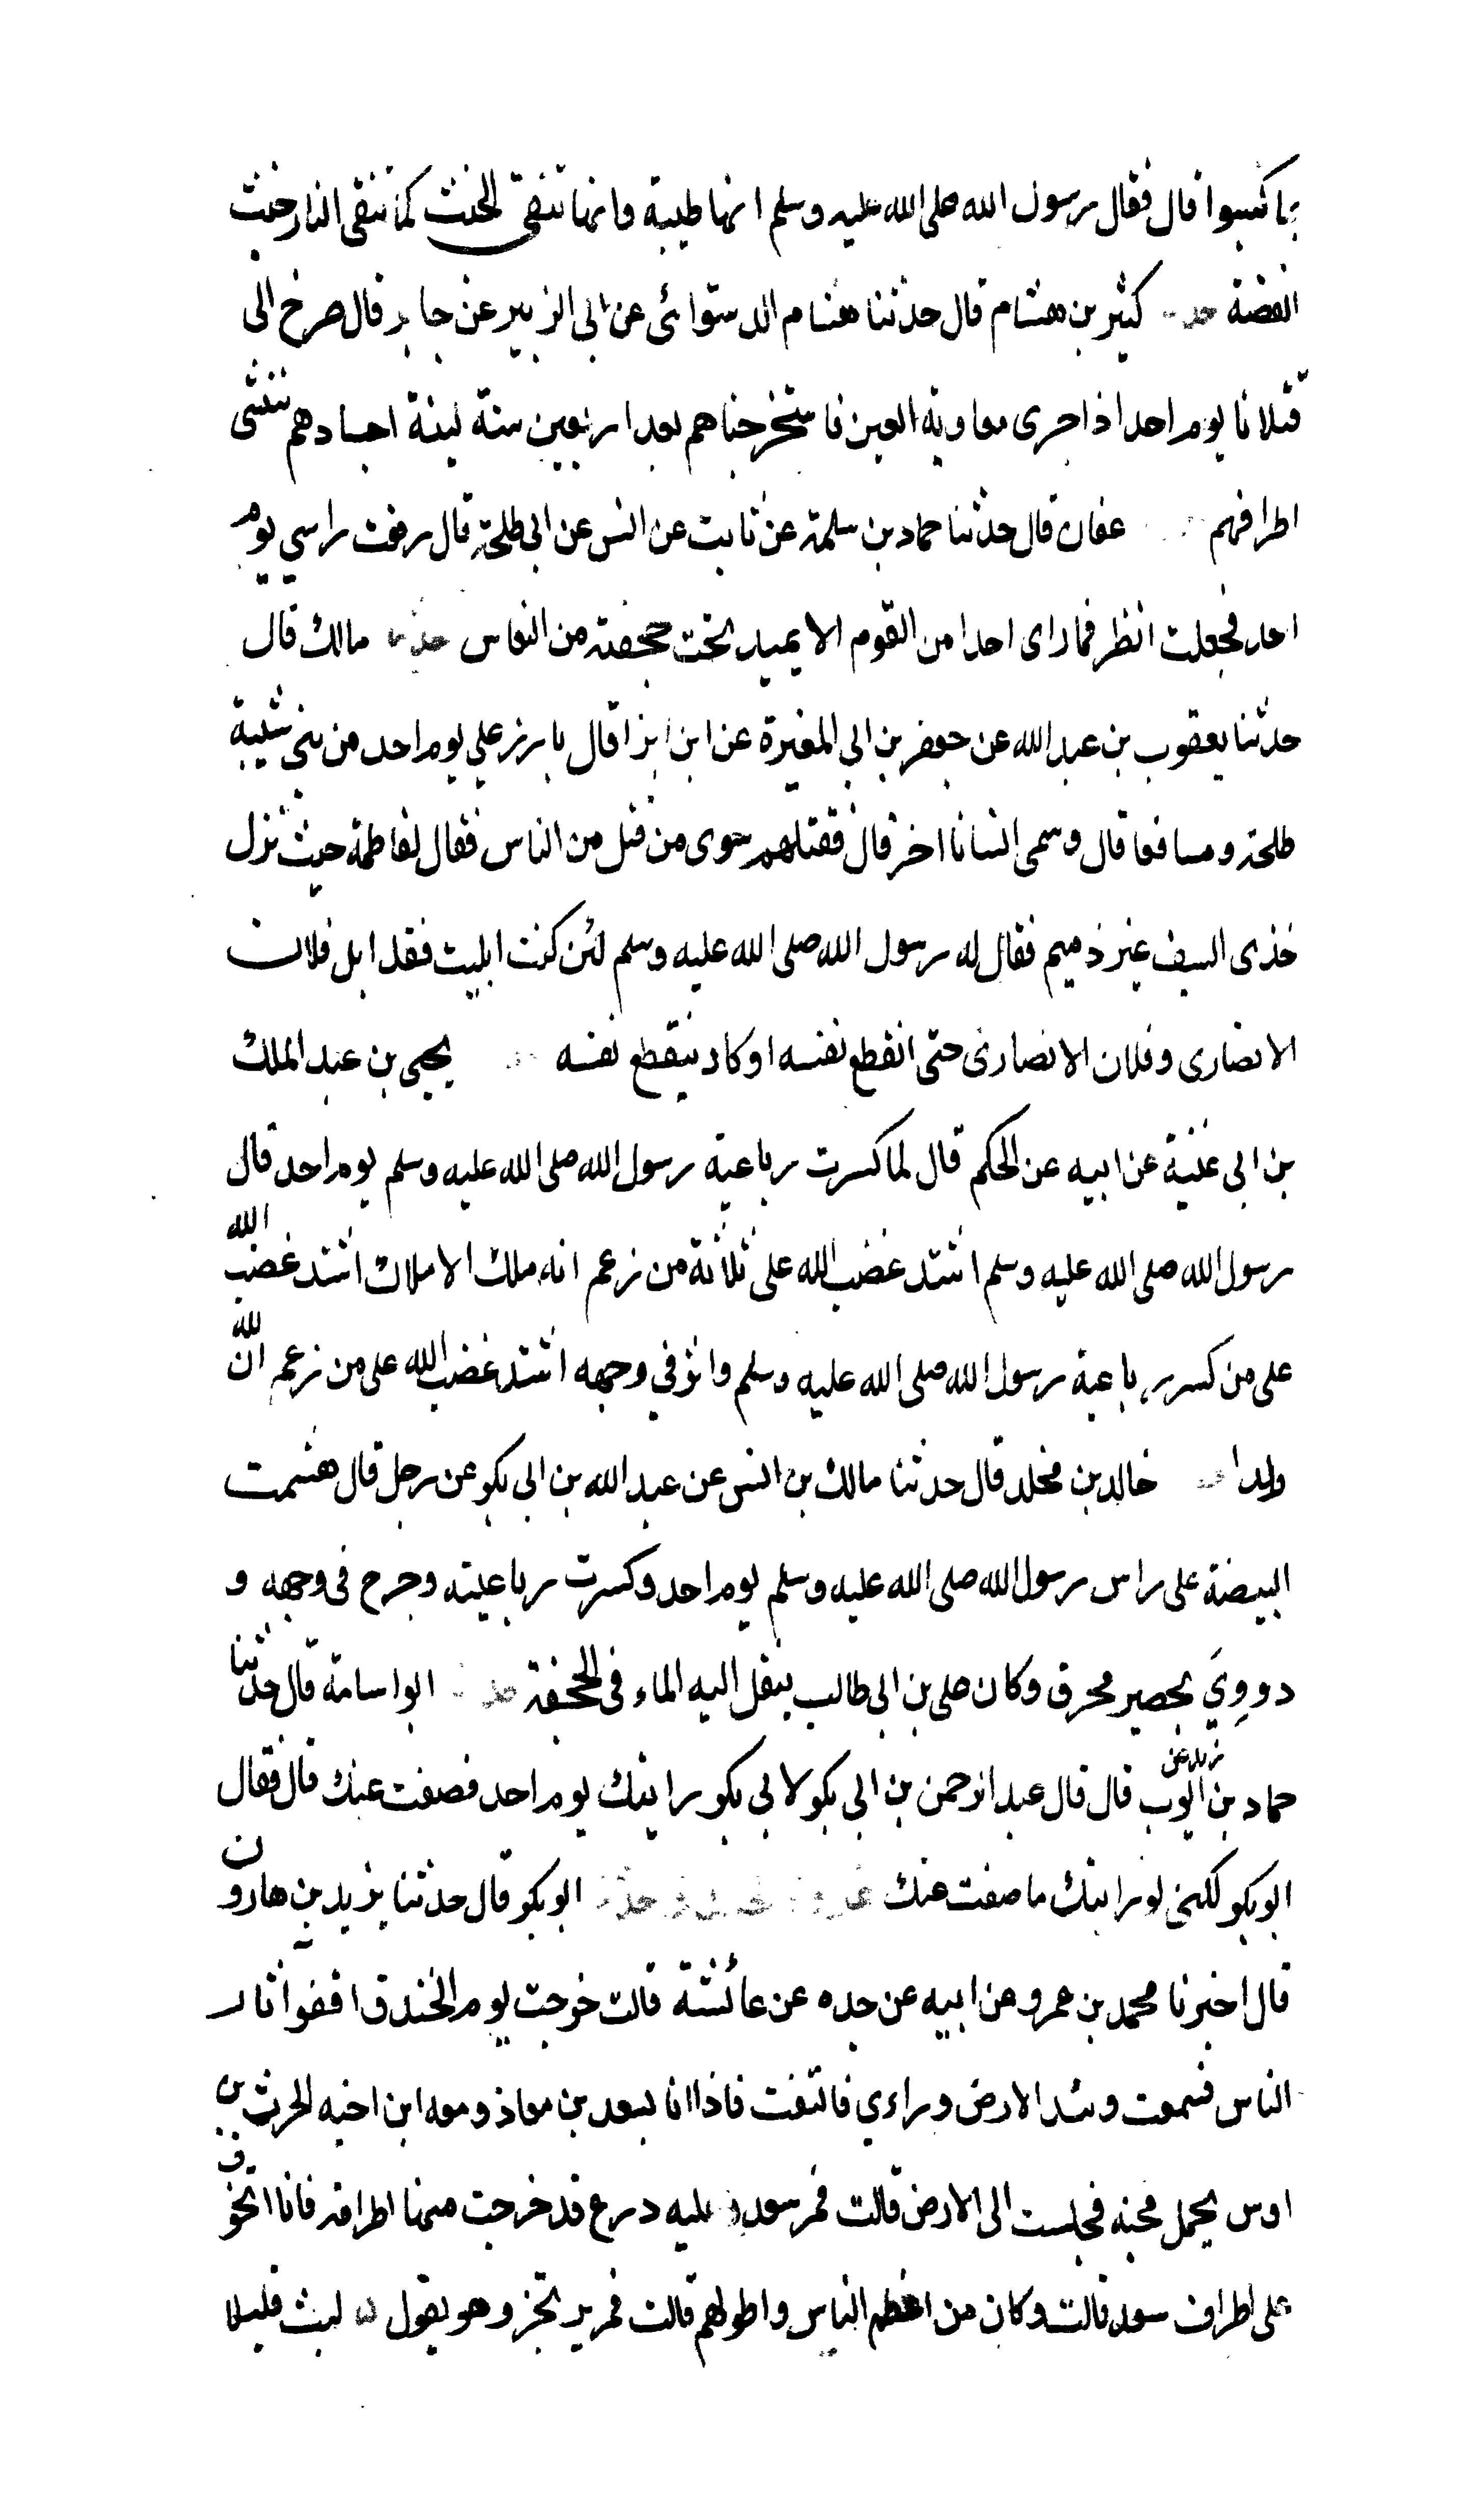 بما كسبوا قال فقال رسول الله صلى الله عليه وسلم انها طيبة وانها تنفى الخبث كما تنفى النار خبث
الفضة حد كثير بن هشام قال حدثنا هشام الدستوائى عن ابى الزبير عن جابر قال صرخ الى
قتلانا يوم احد اذ اجرى معاوية العين فاستخرجناهم بعد اربعين سنة لينة اجسادهم تتثنى
اطرافهم عفان قال حدثنا حماد بن سلمة عن ثابت عن انس عن ابى طلحة قال رفعت راسي يوم
احد فجعلت انظر فما ارى احدا من القوم الا يميد تحت حجفته من النعاس حدثنا مالك قال
حدثنا يعقوب بن عبد الله عن جعفر بن ابى المغيرة عن ابن ابزا قال بارز علي يوم احد من بنى شيبة
طلحة و مسافعا قال وسمى انسانا اخر قال فقتلهم سوى من قتل من الناس فقال لفاطمة حيث نزل
خذى السيف غير ذميم فقال له رسول الله صلى الله عليه وسلم لئن كنت ابليت فقد ابل فلان
الانصارى وفلان الانصارى حتى انقطع نفسه او كاد ينقطع نفسه يحيى بن عبد الملك
بن ابى غنية عن ابيه عن الحكم قال لما كسرت رباعية رسول الله صلى الله عليه وسلم يوم احد قال
رسول الله صلى الله عليه وسلم اشتد غضب الله على ثلاثة من زعم انه ملك الاملاك اشتد غضب الله
على من كسر رباعية رسول الله صلى الله عليه وسلم واثر في وجهه اشتد غضب الله على من زعم ان لله
ولدا خالد بن مخلد قال حدثنا مالك بن انس عن عبد الله بن ابى بكر عن رجل قال هشمت
البيضة على راس رسول الله صلى الله عليه وسلم يوم احد وكسرت رباعيته وجرح فى وجهه و
دووِيَ بحصير محرق وكان على بن ابى طالب ينقل اليه الماء فى الحجفة حد ابو اسامة قال حدثنا
حماد بن زيد عن ايوب قال قال عبد الرحمن بن ابى بكر لابى بكر رايتك يوم احد فصفت عنك قال فقال
ابو بكر لكنى لو رايتك ما صفت عنك ابو بكر قال حدثنا يزيد بن هارون
قال اخبرنا محمد بن عمرو عن ابيه عن جده عن عائشة قالت خرجت يوم الخندق اقفوا ثار
الناس فسمعت وئد الارض وراءي فالتفت فاذا انا بسعد بن معاذ ومعه ابن اخيه الحرث بن
اوس يحمل مجنه فجلست الى الارض قالت فمر سعد عليه درع قد خرجت منها اطرافه فانا اتخوف
على اطراف سعد قالت وكان من اعظم الناس واطولهم قالت فمر يرتجز وهو يقول لبث قليلا